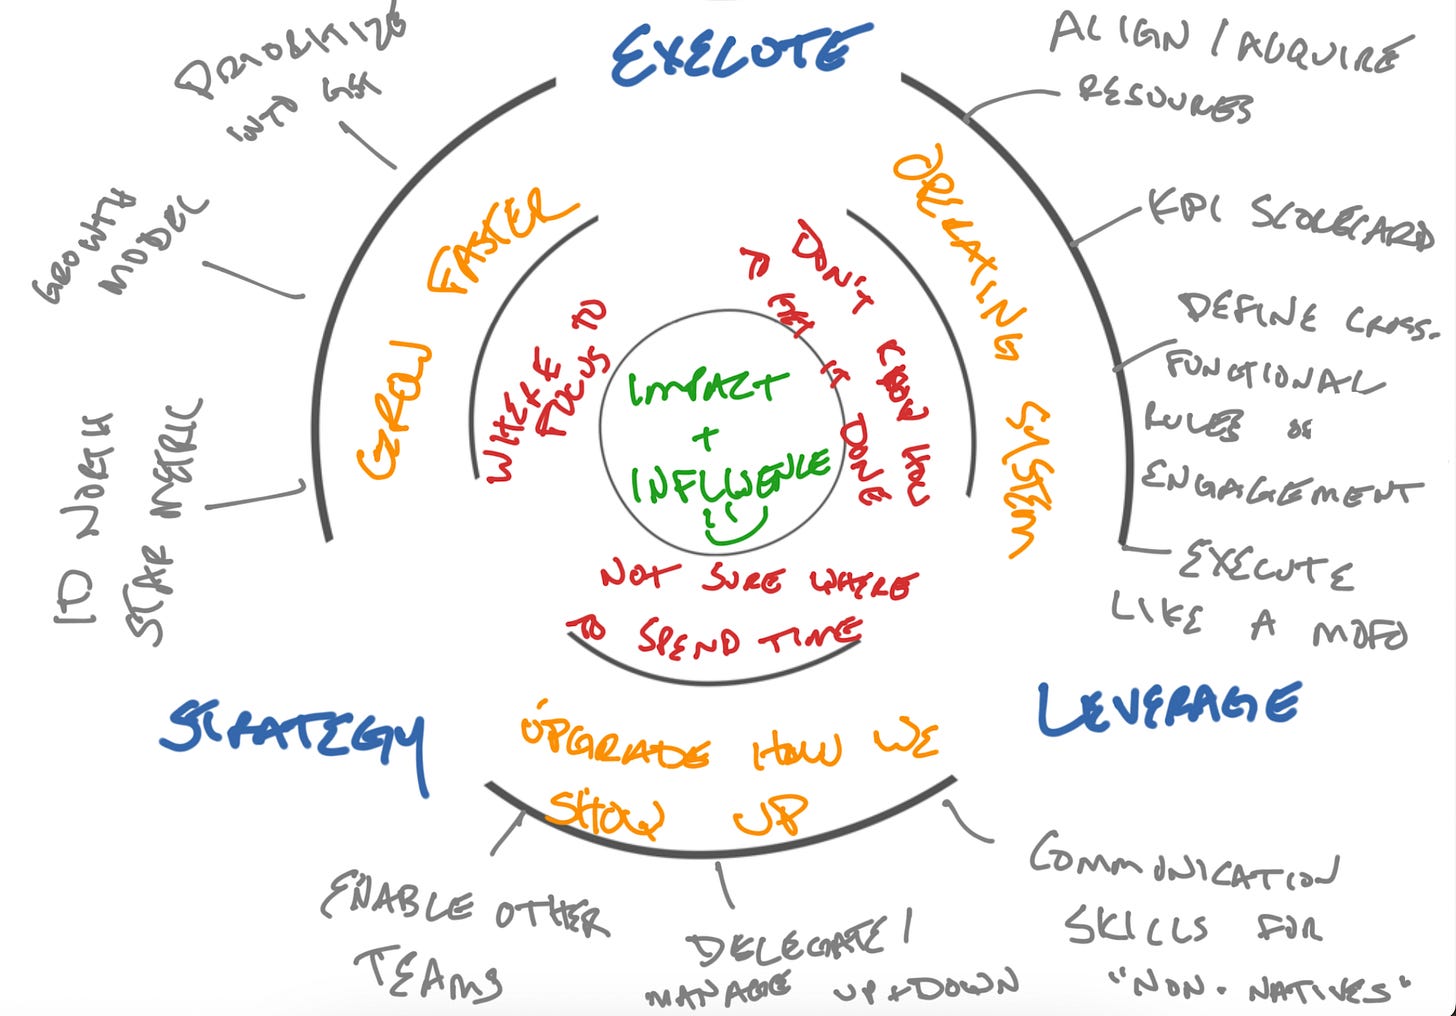 EXECUTE
PRIORITIZE
INTO
GROWTH
MODEL
ID NORTH
STAR METRIC
GROW FASTER
WHERE
FOCUS TO
IMPACT
+
INFLUENCE
TO DON'T KNOW HOW
GET IT DONE
NOT SURE WHERE
TO SPEND TIME
OPERATING SYSTEM
ALIGN / ACQUIRE
RESOURCES
KPI SCORECARD
DEFINE CROSS-
FUNCTIONAL
RULES OF
ENGAGEMENT
EXECUTE
LIKE A MOFO
STRATEGY
LEVERAGE
UPGRADE HOW WE
SHOW UP
ENABLE OTHER
TEAMS
DELEGATE /
MANAGE UP + DOWN
COMMUNICATION
SKILLS FOR
"NON-NATIVES"